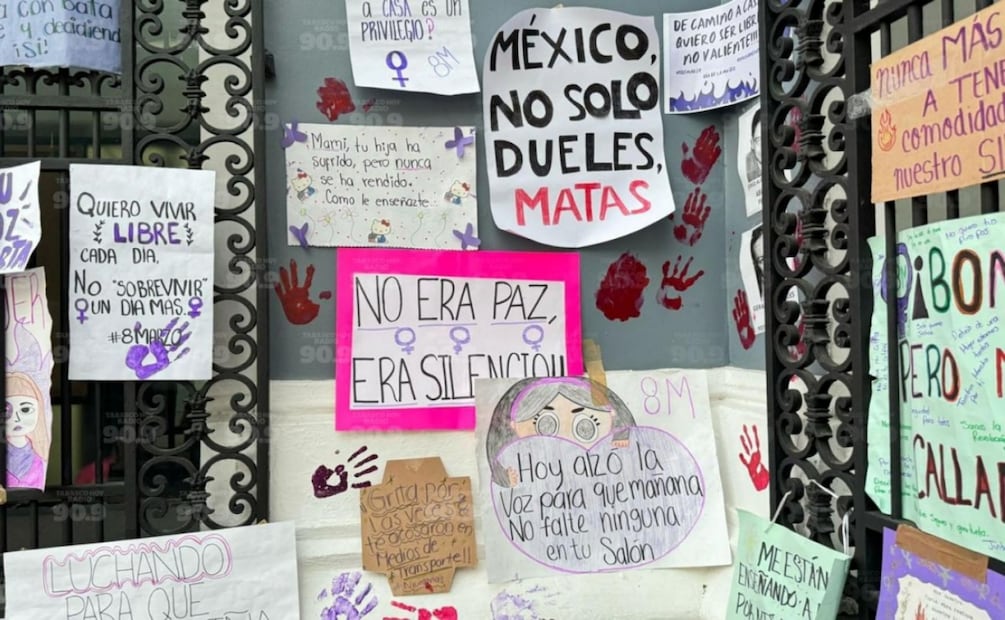 con bata
y decidiend
¡si!
A CASA ES UN
PRIVILEGIO?
8M
MÉXICO,
NO SOLO
DUELES,
MATAS
DE CAMINO A CASA
QUIERO SER LIBRE
NO VALIENTE!!!
NUNCA MÁS
A TENE
comodidad
nuestro SI
Mami, tu hija ha
sufrido, pero nunca
se ha rendido.
Como le enseñazte...
QUIERO VIVIR
LIBRE
CADA DIA,
NO "SOBREVIVIR"
UN DIA MAS.
#8MARZO
NO ERA PAZ,
ERA SILENCIO!!
8M
Hoy alzó la
voz para que mañana
No falte ninguna
en tu Salón
Grita por
las veces que
te acosaron en
Medios de
*Transporte!!
¡BON
PERO
CALLA
LUCHANDO
PARA QUE
ME ESTÁN
ENSEÑANDO A
TABASCO HOY
RADIO
90.9